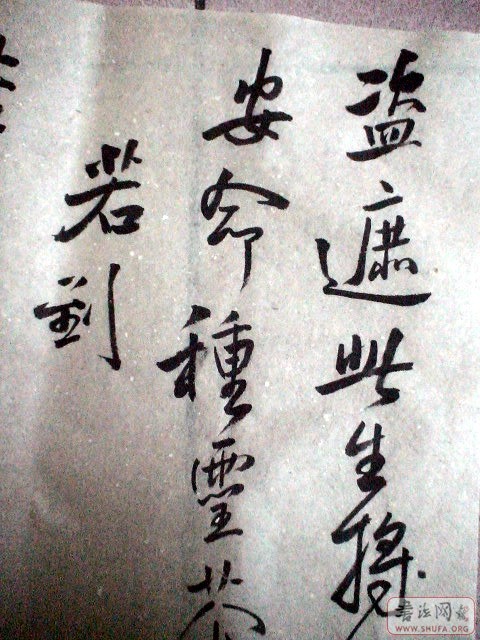 盗遮此生擇
安命種靈苓
若到
書法网
WWW.SHUFA.ORG